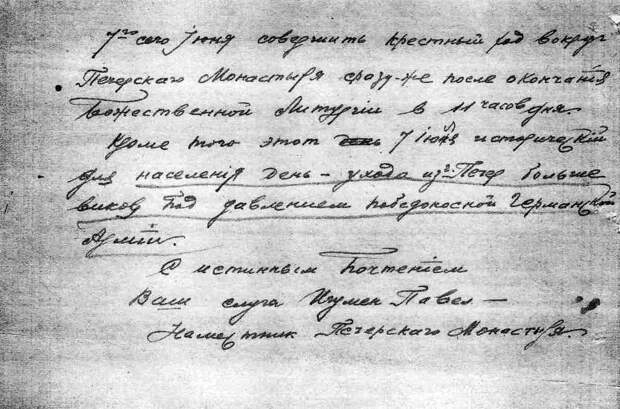 7го сего Iюня совершить крестный ход вокруг
Печерскаго Монастыря сразу-же после окончанiя
Божественной Литургiи в 11 часов дня.
Кроме того этот день 7 iюня историческiй
для населенiя день – ухода из Печер больше
виков под давлением победоносной Германской
Армiи.
С истинным почтенiем
Ваш слуга Игумен Павел –
Наместник Печерскаго Монастыря.